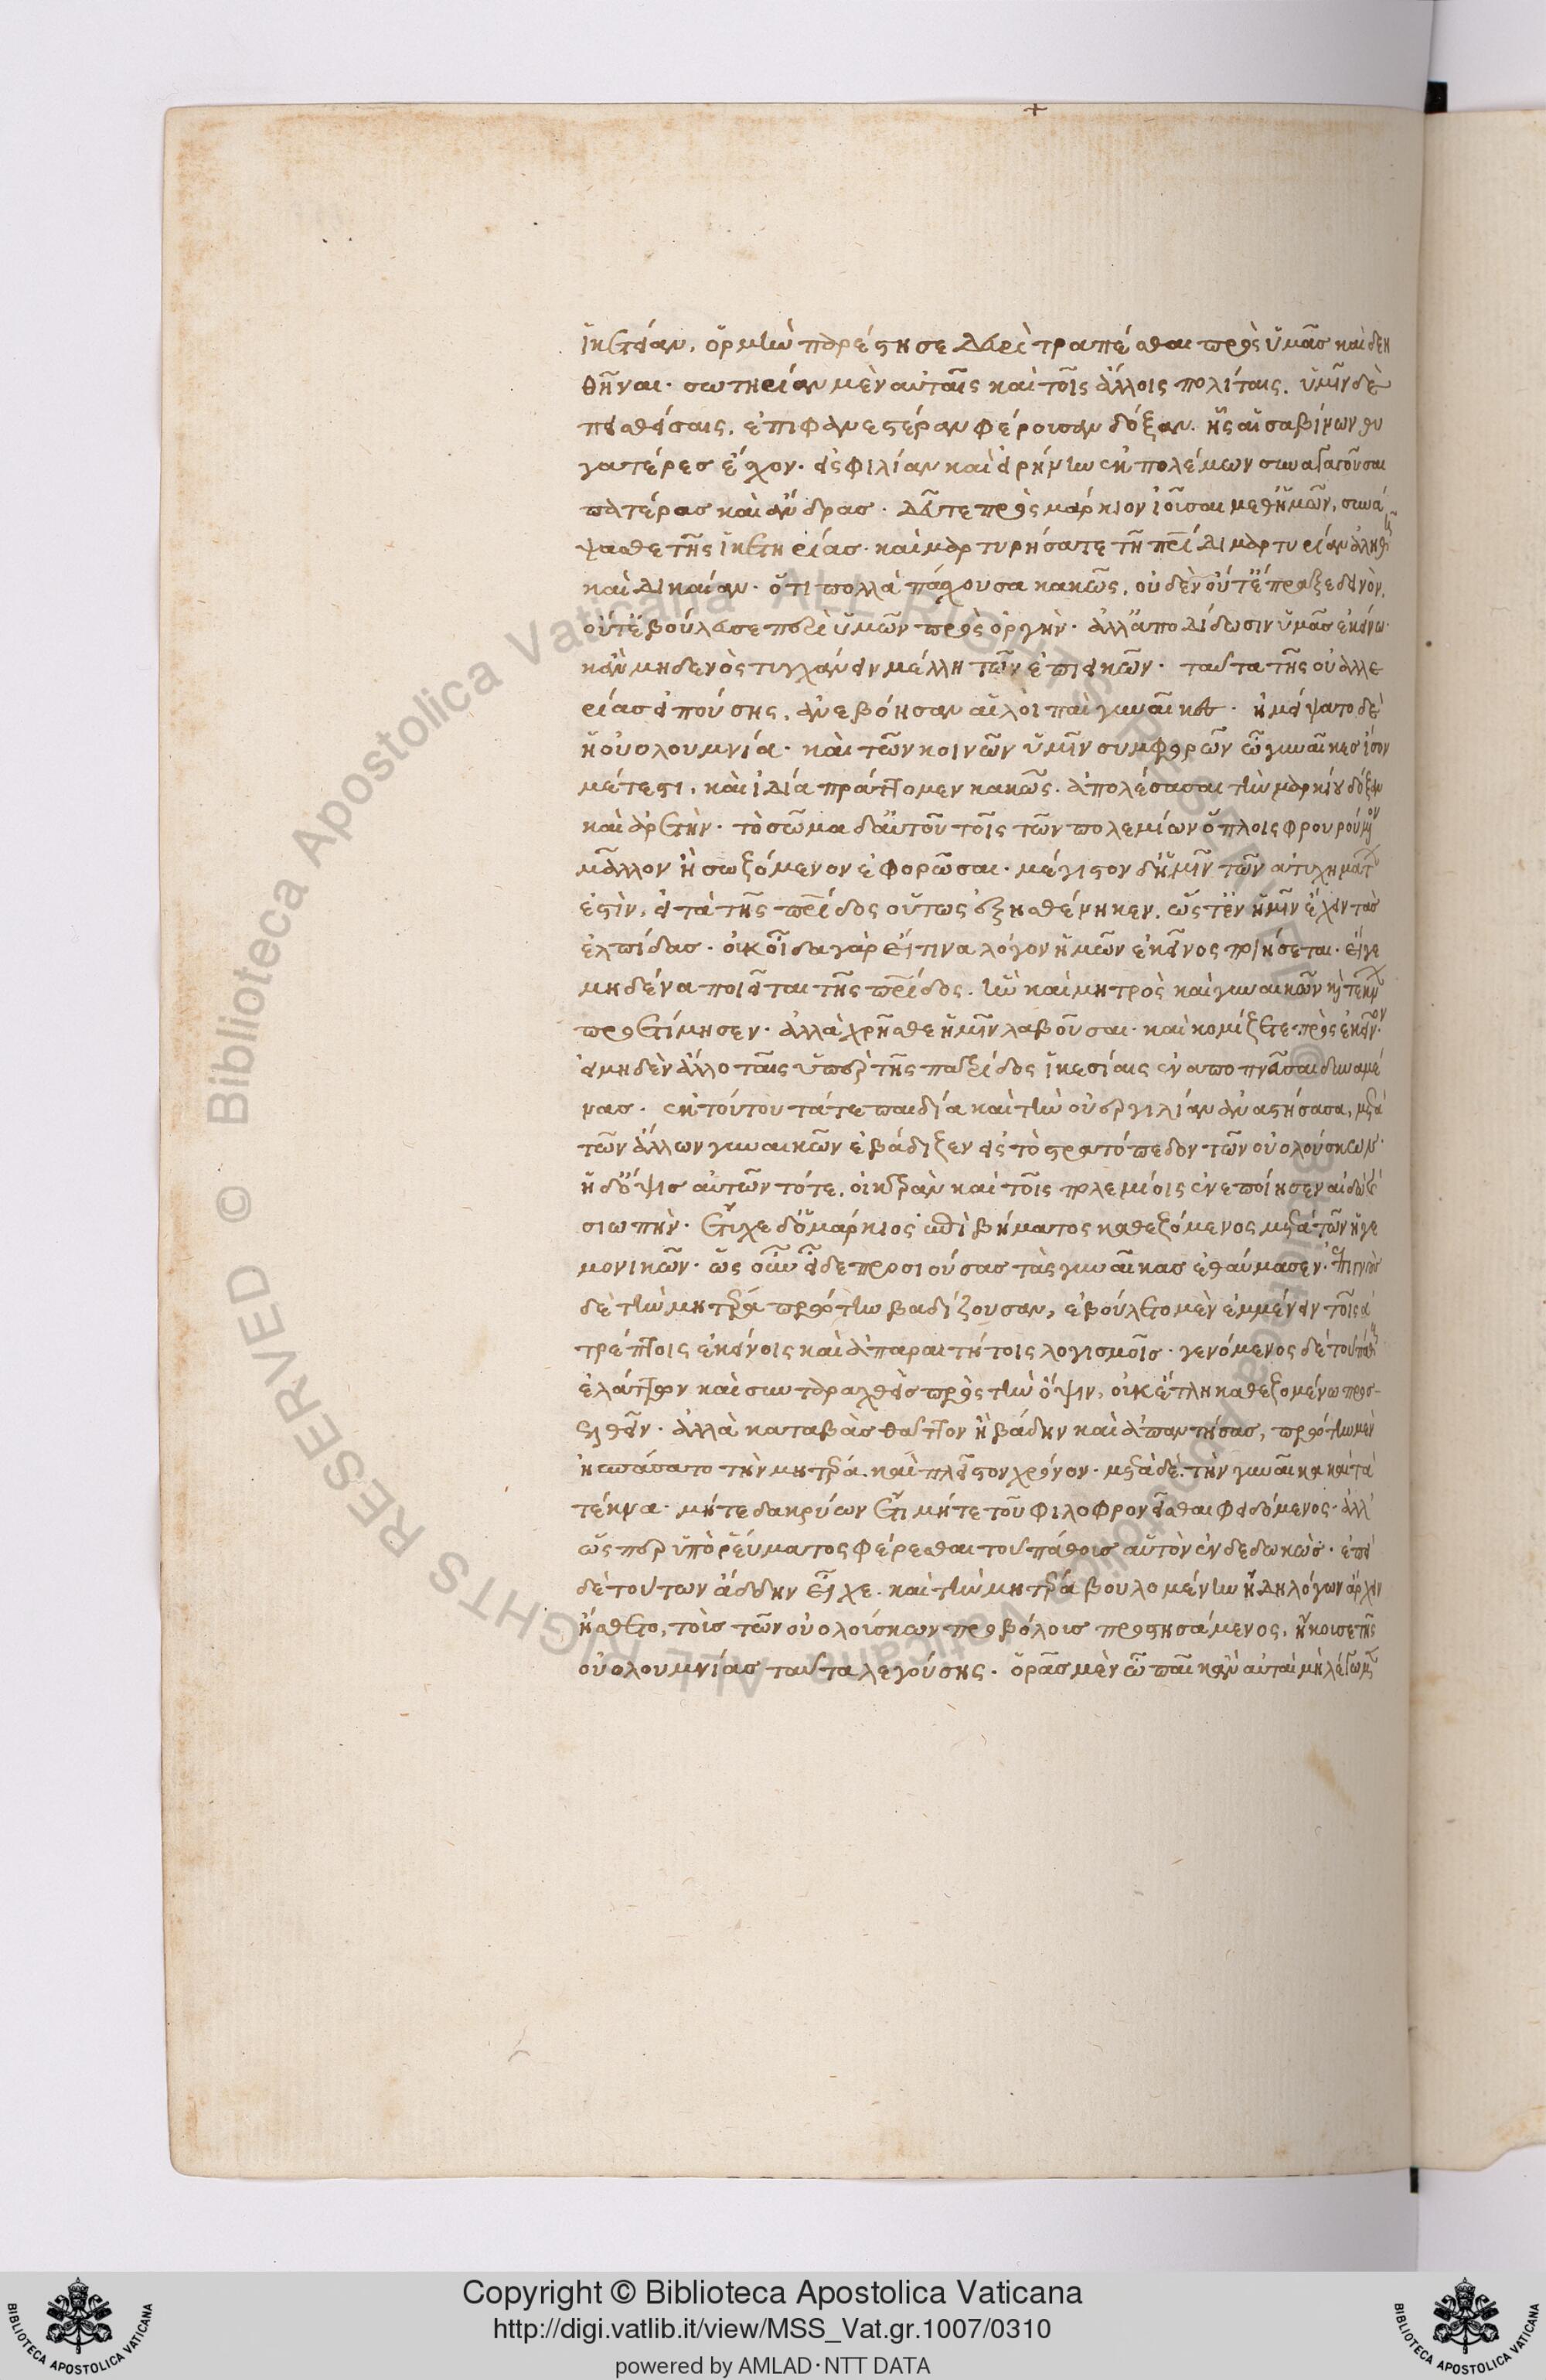 ἱκετείαν, ὁρμὴν παρέστησε δευρὶ τραπέσθαι πρὸς ὑμᾶς καὶ δεη
θῆναι· σωτηρίαν μὲν αὐταῖς καὶ τοῖς ἄλλοις πολίταις. ὑμῖν δὲ
πεισθείσαις, ἐπιφανεστέραν φέρουσαν δόξαν. ἧς αἱ σαβίνων θυ
γατέρες ἔσχον. εἰς φιλίαν καὶ εἰρήνην ἐκ πολέμων συναγαγοῦσαι
πατέρας καὶ ἄνδρας. δεῦτε πρὸς μάρκιον ἰοῦσαι μεθ' ἡμῶν, συνά
ψασθε τῆς ἱκετηρίας. καὶ μαρτυρήσατε τῇ πατρίδι μαρτυρίαν ἀληθῆ
καὶ δικαίαν. ὅτι πολλὰ πάσχουσα κακῶς, οὐδὲν οὔτ' ἔπραξε δεινὸν,
οὔτ' ἐβούλευσε περὶ ὑμῶν πρὸς ὀργὴν. ἀλλ' ἀποδίδωσιν ὑμᾶς ἐκείνῳ.
κἂν μηδενὸς τυγχάνειν μέλλῃ τῶν ἐπιεικῶν. ταῦτα τῆς οὐαλλε
ρίας εἰπούσης, ἀνεβόησαν αἱ λοιπαὶ γυναῖκες. ἠμείψατο δὲ
ἡ οὐολουμνία. καὶ τῶν κοινῶν ὑμῖν συμφορῶν ὦ γυναῖκες ἴσον
μέτεστι, καὶ ἰδίᾳ πράττομεν κακῶς. ἀπολέσασαι τὴν μαρκίου δόξαν
καὶ ἀρετὴν. τὸ σῶμα δ' αὐτοῦ τοῖς τῶν πολεμίων ὅπλοις φρουρούμενον
μᾶλλον ἢ σωζόμενον ἐφορῶσαι. μέγιστον δ' ἡμῖν τῶν ἀτυχημάτων
ἐστὶν, εἰ τὰ τῆς πατρίδος οὕτως ἐξησθένηκεν, ὥστ' ἐν ἡμῖν ἔχειν τὰς
ἐλπίδας. οὐκ οἶδα γὰρ εἴ τινα λόγον ἡμῶν ἐκεῖνος ποιήσεται. εἴγε
μηδένα ποιεῖται τῆς πατρίδος. ἣν καὶ μητρὸς καὶ γυναικῶν καὶ τέκνων
προετίμησεν. ἀλλὰ χρῆσθε ἡμῖν λαβοῦσαι. καὶ κομίζετε πρὸς ἐκεῖνον.
εἰ μηδὲν ἄλλο ταῖς ὑπὲρ τῆς πατρίδος ἱκεσίαις ἐναποπνεῦσαι δυναμέ
νας. ἐκ τούτου τά τε παιδία καὶ τὴν οὐεργιλίαν ἀναστήσασα, μετὰ
τῶν ἄλλων γυναικῶν ἐβάδιζεν εἰς τὸ στρατόπεδον τῶν οὐολούσκων.
ἡ δ' ὄψις αὐτῶν τό τε, οἰκτρὰν καὶ τοῖς πολεμίοις ἐνεποίησεν αἰδῶ καὶ
σιωπὴν. ἔτυχε δ' ὁ μάρκιος ἐπὶ βήματος καθεζόμενος μετὰ τῶν ἡγε
μονικῶν. ὡς οὖν εἶδε προσιούσας τὰς γυναῖκας ἐθαύμασεν. ἐπιγνοὺς
δὲ τὴν μητέρα πρώτην βαδίζουσαν, ἐβούλετο μὲν ἐμμένειν τοῖς ἀ
τρέπτοις ἐκείνοις καὶ ἀπαραιτήτοις λογισμοῖς. γενόμενος δὲ τοῦ πάθους
ἐλάττων καὶ συνταραχθεὶς πρὸς τὴν ὄψιν, οὐκ ἔτλη καθεζομένῳ προσ-
ελθεῖν. ἀλλὰ καταβὰς θᾶττον ἢ βάδην καὶ ἀπαντήσας, πρώτην μὲν
ἠσπάσατο τὴν μητέρα. καὶ πλεῖστον χρόνον. μετὰ δὲ τὴν γυναῖκα καὶ τὰ
τέκνα. μήτε δακρύων ἔτι μήτε τοῦ φιλοφρονεῖσθαι φειδόμενος. ἀλλ'
ὥσπερ ὑπὸ ῥεύματος φέρεσθαι τοῦ πάθους αὑτὸν ἐνδεδωκὼς. ἐπεὶ
δὲ τούτων ἄδδην εἶχε. καὶ τὴν μητέρα βουλομένην ἤδη λόγων ἄρχειν
ᾔσθετο, τοὺς τῶν οὐολούσκων προβόλους προστησάμενος, ἤκουσε τῆς
οὐολουμνίας ταῦτα λεγούσης. ὁρᾷς μὲν ὦ παῖ κἂν αὐταὶ μὴ λέγωμεν
Copyright © Biblioteca Apostolica Vaticana
http://digi.vatlib.it/view/MSS_Vat.gr.1007/0310
powered by AMLAD·NTT DATA